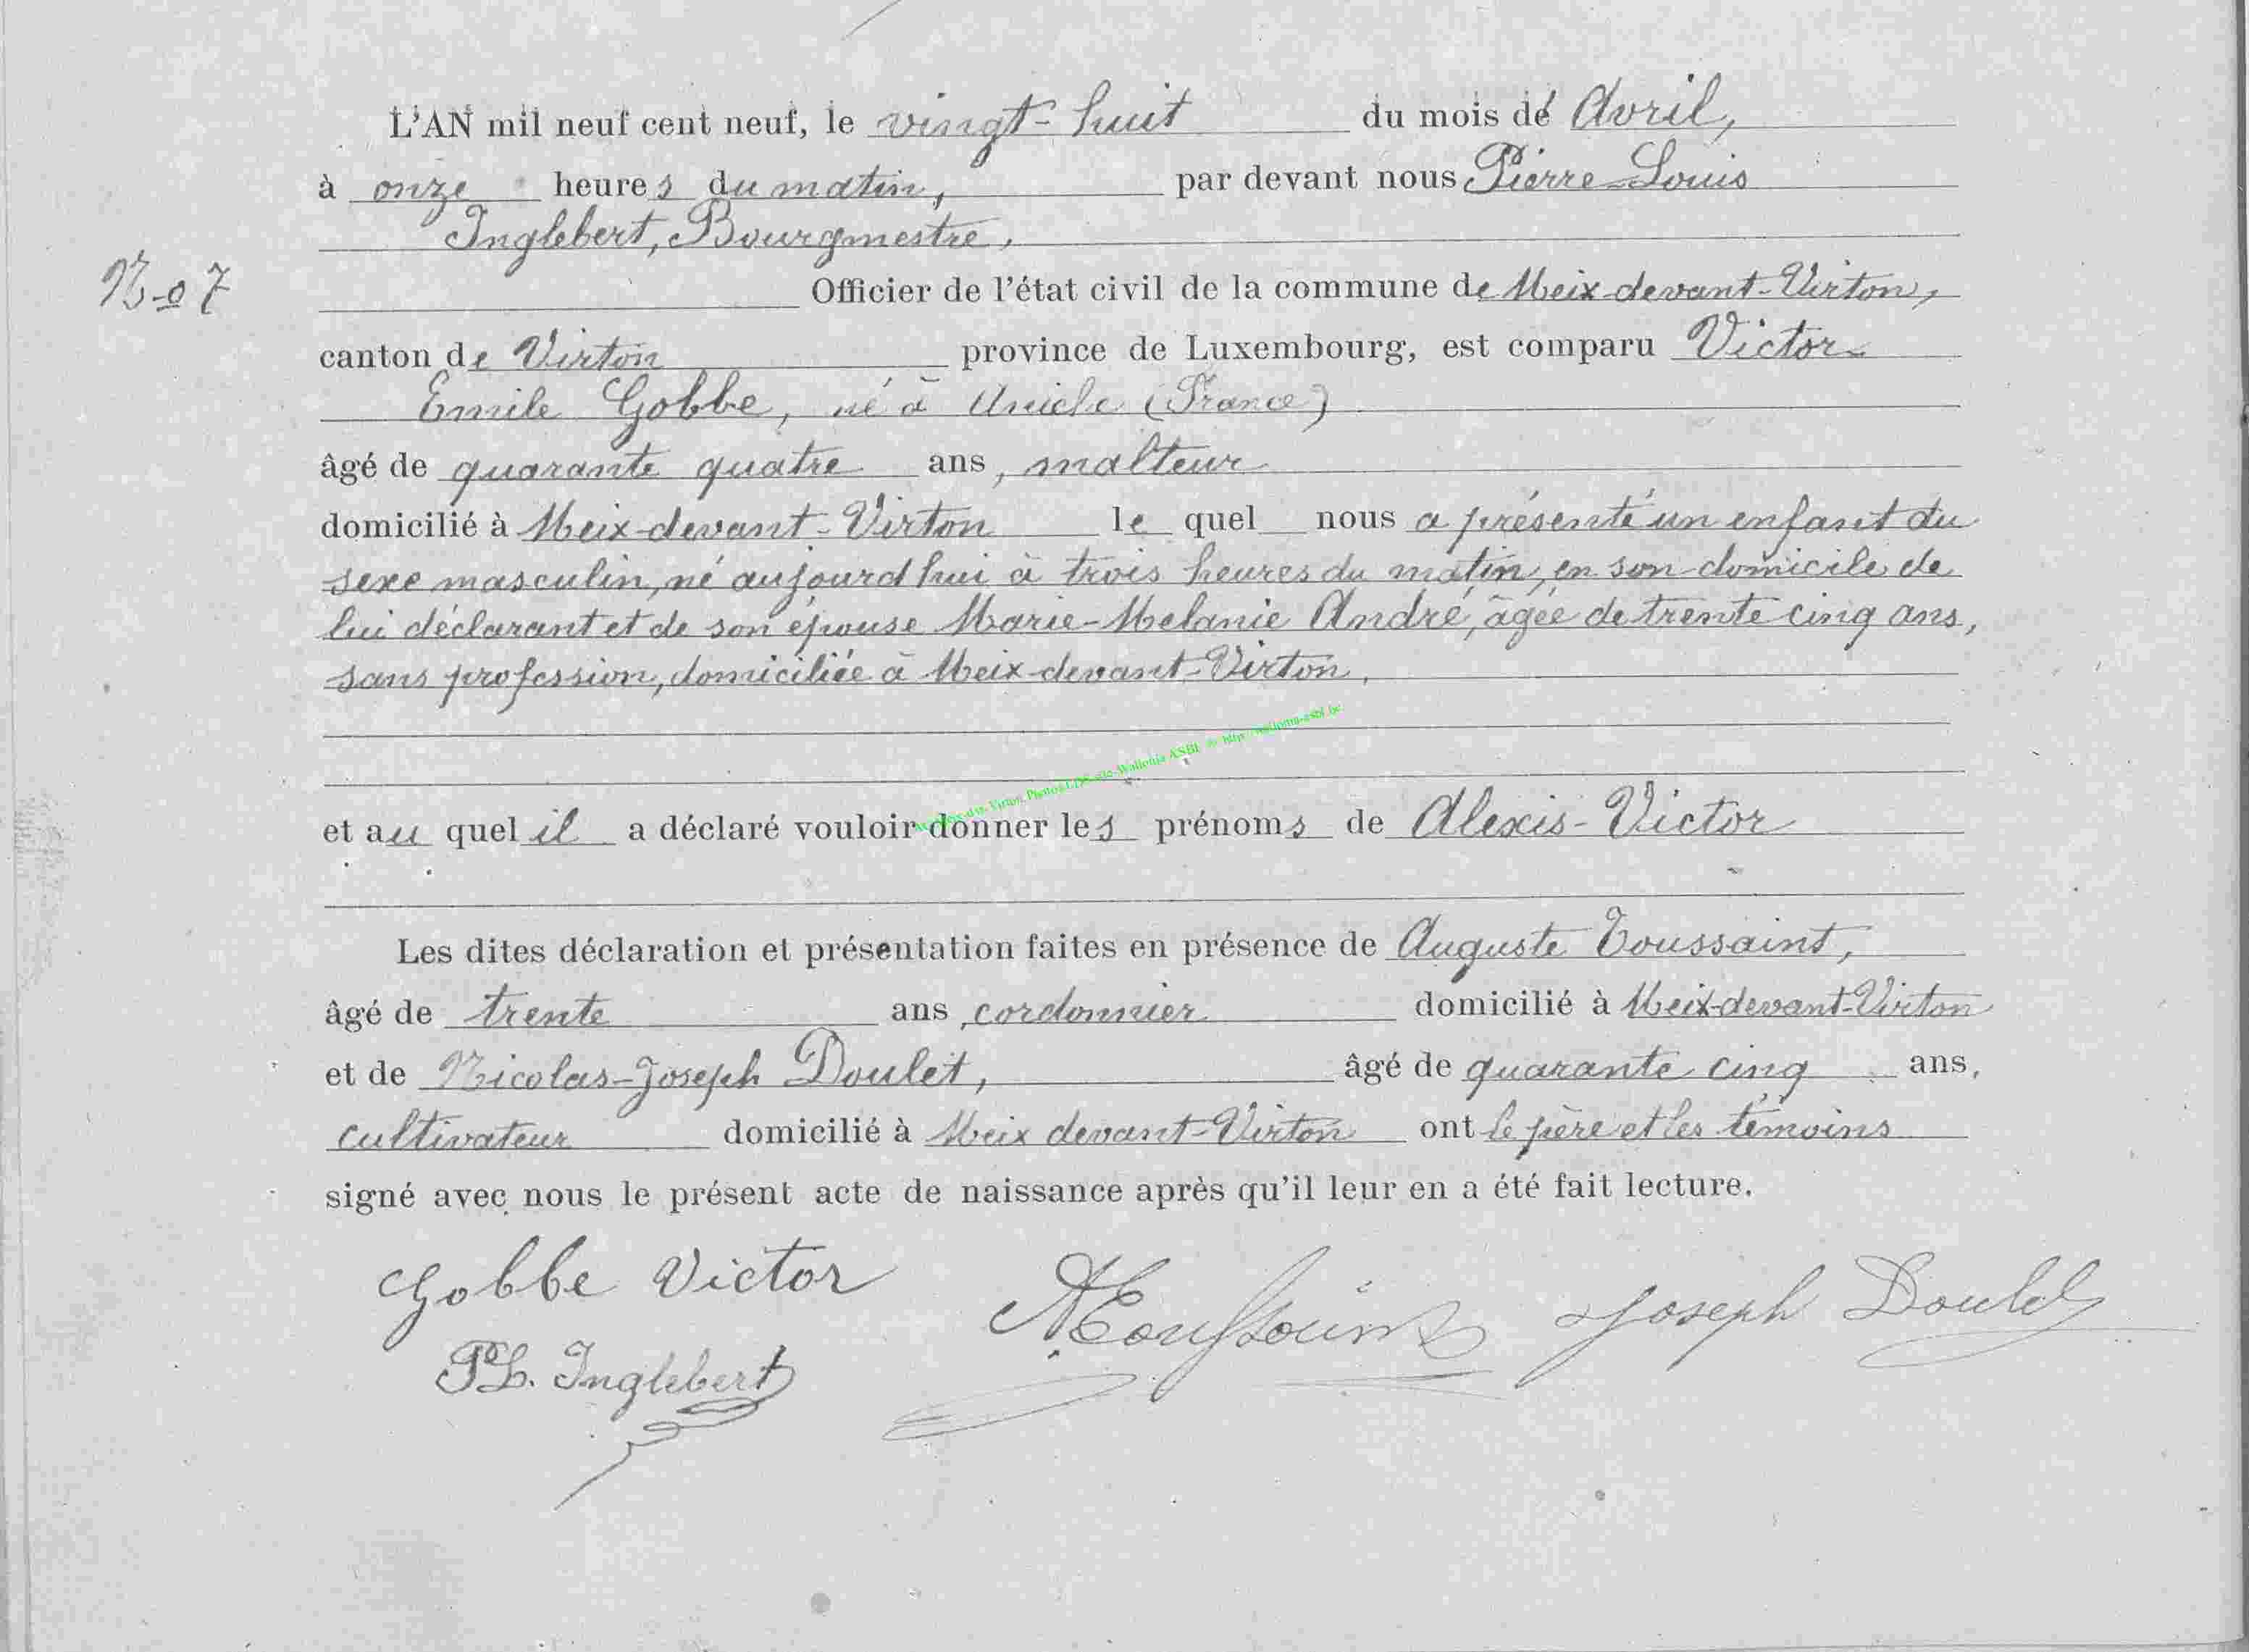 L'AN mil neuf cent neuf, le vingt-huit du mois de Avril,
à onze heures du matin, par devant nous Pierre-Louis
Inglebert, Bourgmestre,
No 7
Officier de l'état civil de la commune de Meix-devant-Virton,
canton de Virton province de Luxembourg, est comparu Victor-
Emile Gobbe, né à Aniche (France)
âgé de quarante quatre ans, malteur
domicilié à Meix-devant-Virton le quel nous a présenté un enfant du
sexe masculin, né aujourd'hui à trois heures du matin, en son domicile de
lui déclarant et de son épouse Marie-Melanie André, âgée de trente cinq ans,
sans profession, domiciliée à Meix-devant-Virton,
et au quel il a déclaré vouloir donner les prénoms de Alexis-Victor
Les dites déclaration et présentation faites en présence de Auguste Toussaint,
âgé de trente ans, cordonnier domicilié à Meix-devant-Virton
et de Nicolas-Joseph Doulet, âgé de quarante cinq ans,
cultivateur domicilié à Meix devant-Virton ont le père et les témoins
signé avec nous le présent acte de naissance après qu'il leur en a été fait lecture.
Gobbe Victor
A Toussaint Joseph Doulet
PL. Inglebert